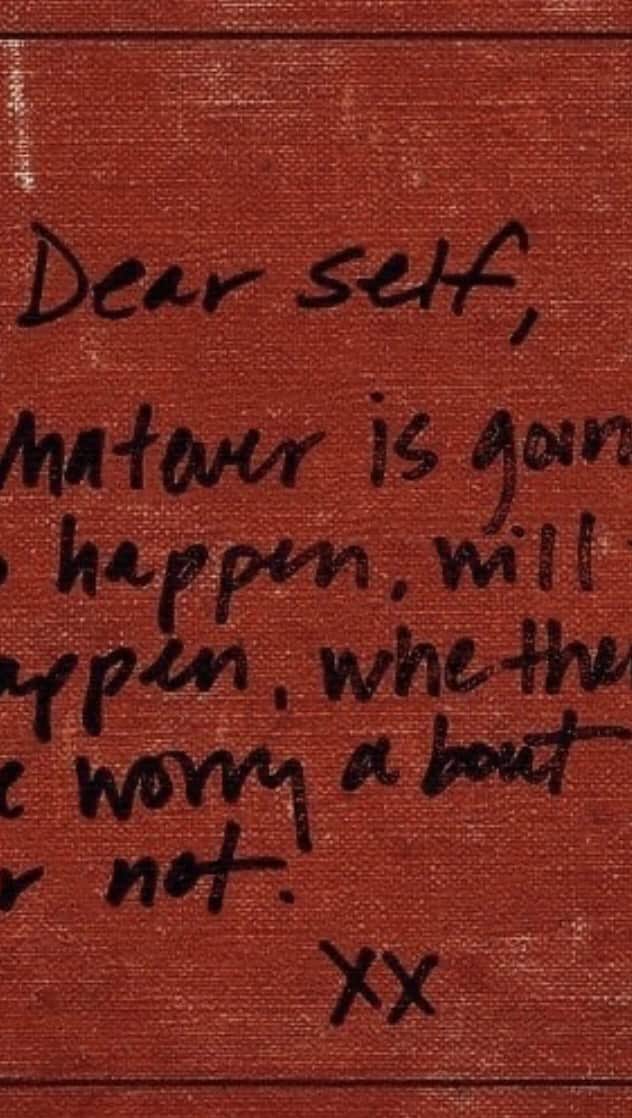 Dear self,
whatever is goin
o happen, will
appen, whether
e worry about
r not.
xx